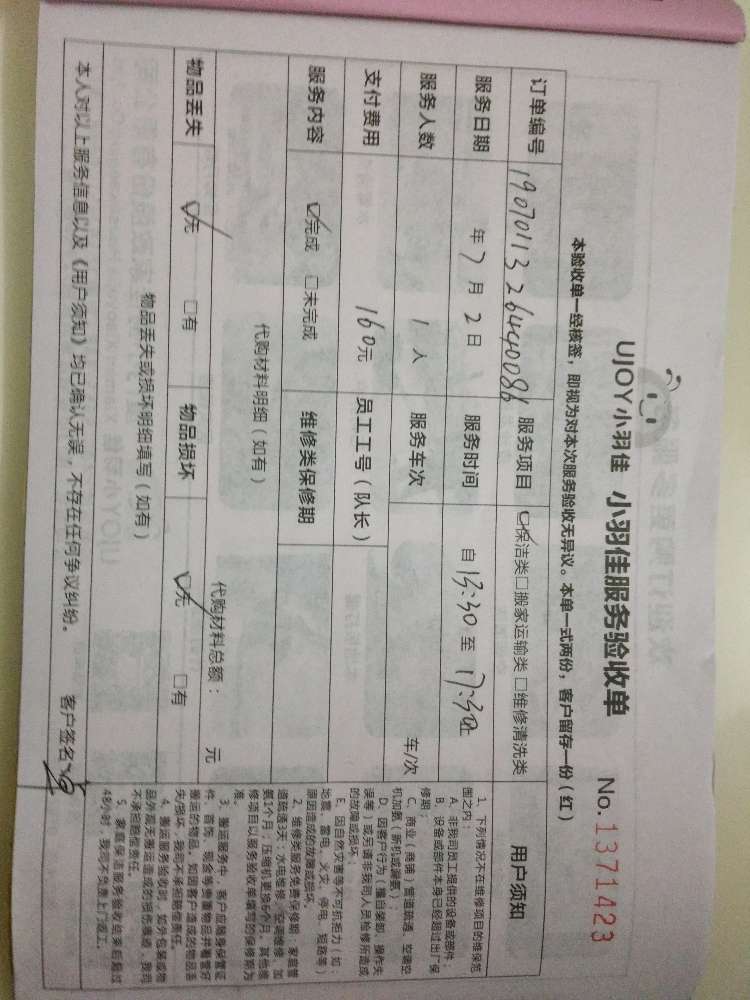 UJOY小羽佳 小羽佳服务验收单
No.1371423
本验收单一经核签，即视为对本次服务验收无异议。本单一式两份，客户留存一份（红）
订单编号 服务项目 ☑保洁类□搬家运输类 □维修清洗类
服务日期 年7月2日 服务时间 自13:30至
服务人数 1人 服务车次 车/次
支付费用 160元 员工工号（队长）
服务内容 ☑完成 □未完成 维修类保修期
代购材料明细（如有）
代购材料总额： 元
物品丢失 ☑无 □有 物品损坏 ☑无 □有
物品丢失或损坏明细填写（如有）
本人对以上服务信息以及《用户须知》均已确认无误，不存在任何争议纠纷。 客户签名
用户须知
1、下列情况不在维修项目的维保范
围之内：
A、非我司员工提供的设备或部件；
B、设备或部件本身已经超过出厂保
修期；
C、商业（商铺）管道疏通、空调空
机加氨（新机或漏氨）；
D、因客户行为（擅自装卸、操作失
误等）或另请非我司人员检修所造成
的故障或损坏；
E、因自然灾害等不可抗拒力（如：
地震、雷电、火灾、停电、短路等）
原因造成的故障或损坏。
2、维修类服务免费保修期：家庭管
道疏通3天；水电维修、空调维修、加
氨1个月；压缩机更换6个月。其他维
修项目以服务验收单填写的保修期为
准。
3、搬运服务中，客户应随身保管证
件、首饰、现金等贵重物品并看管好
搬运的物品，如因客户造成的物品丢
失/损坏，我司不承担赔偿责任。
4、搬运服务验收时，如外包装或物
品外观无搬运造成的损伤痕迹，我司
不承担赔偿责任。
5、家庭保洁服务验收结束后超过
48小时，我司不免费上门返工。